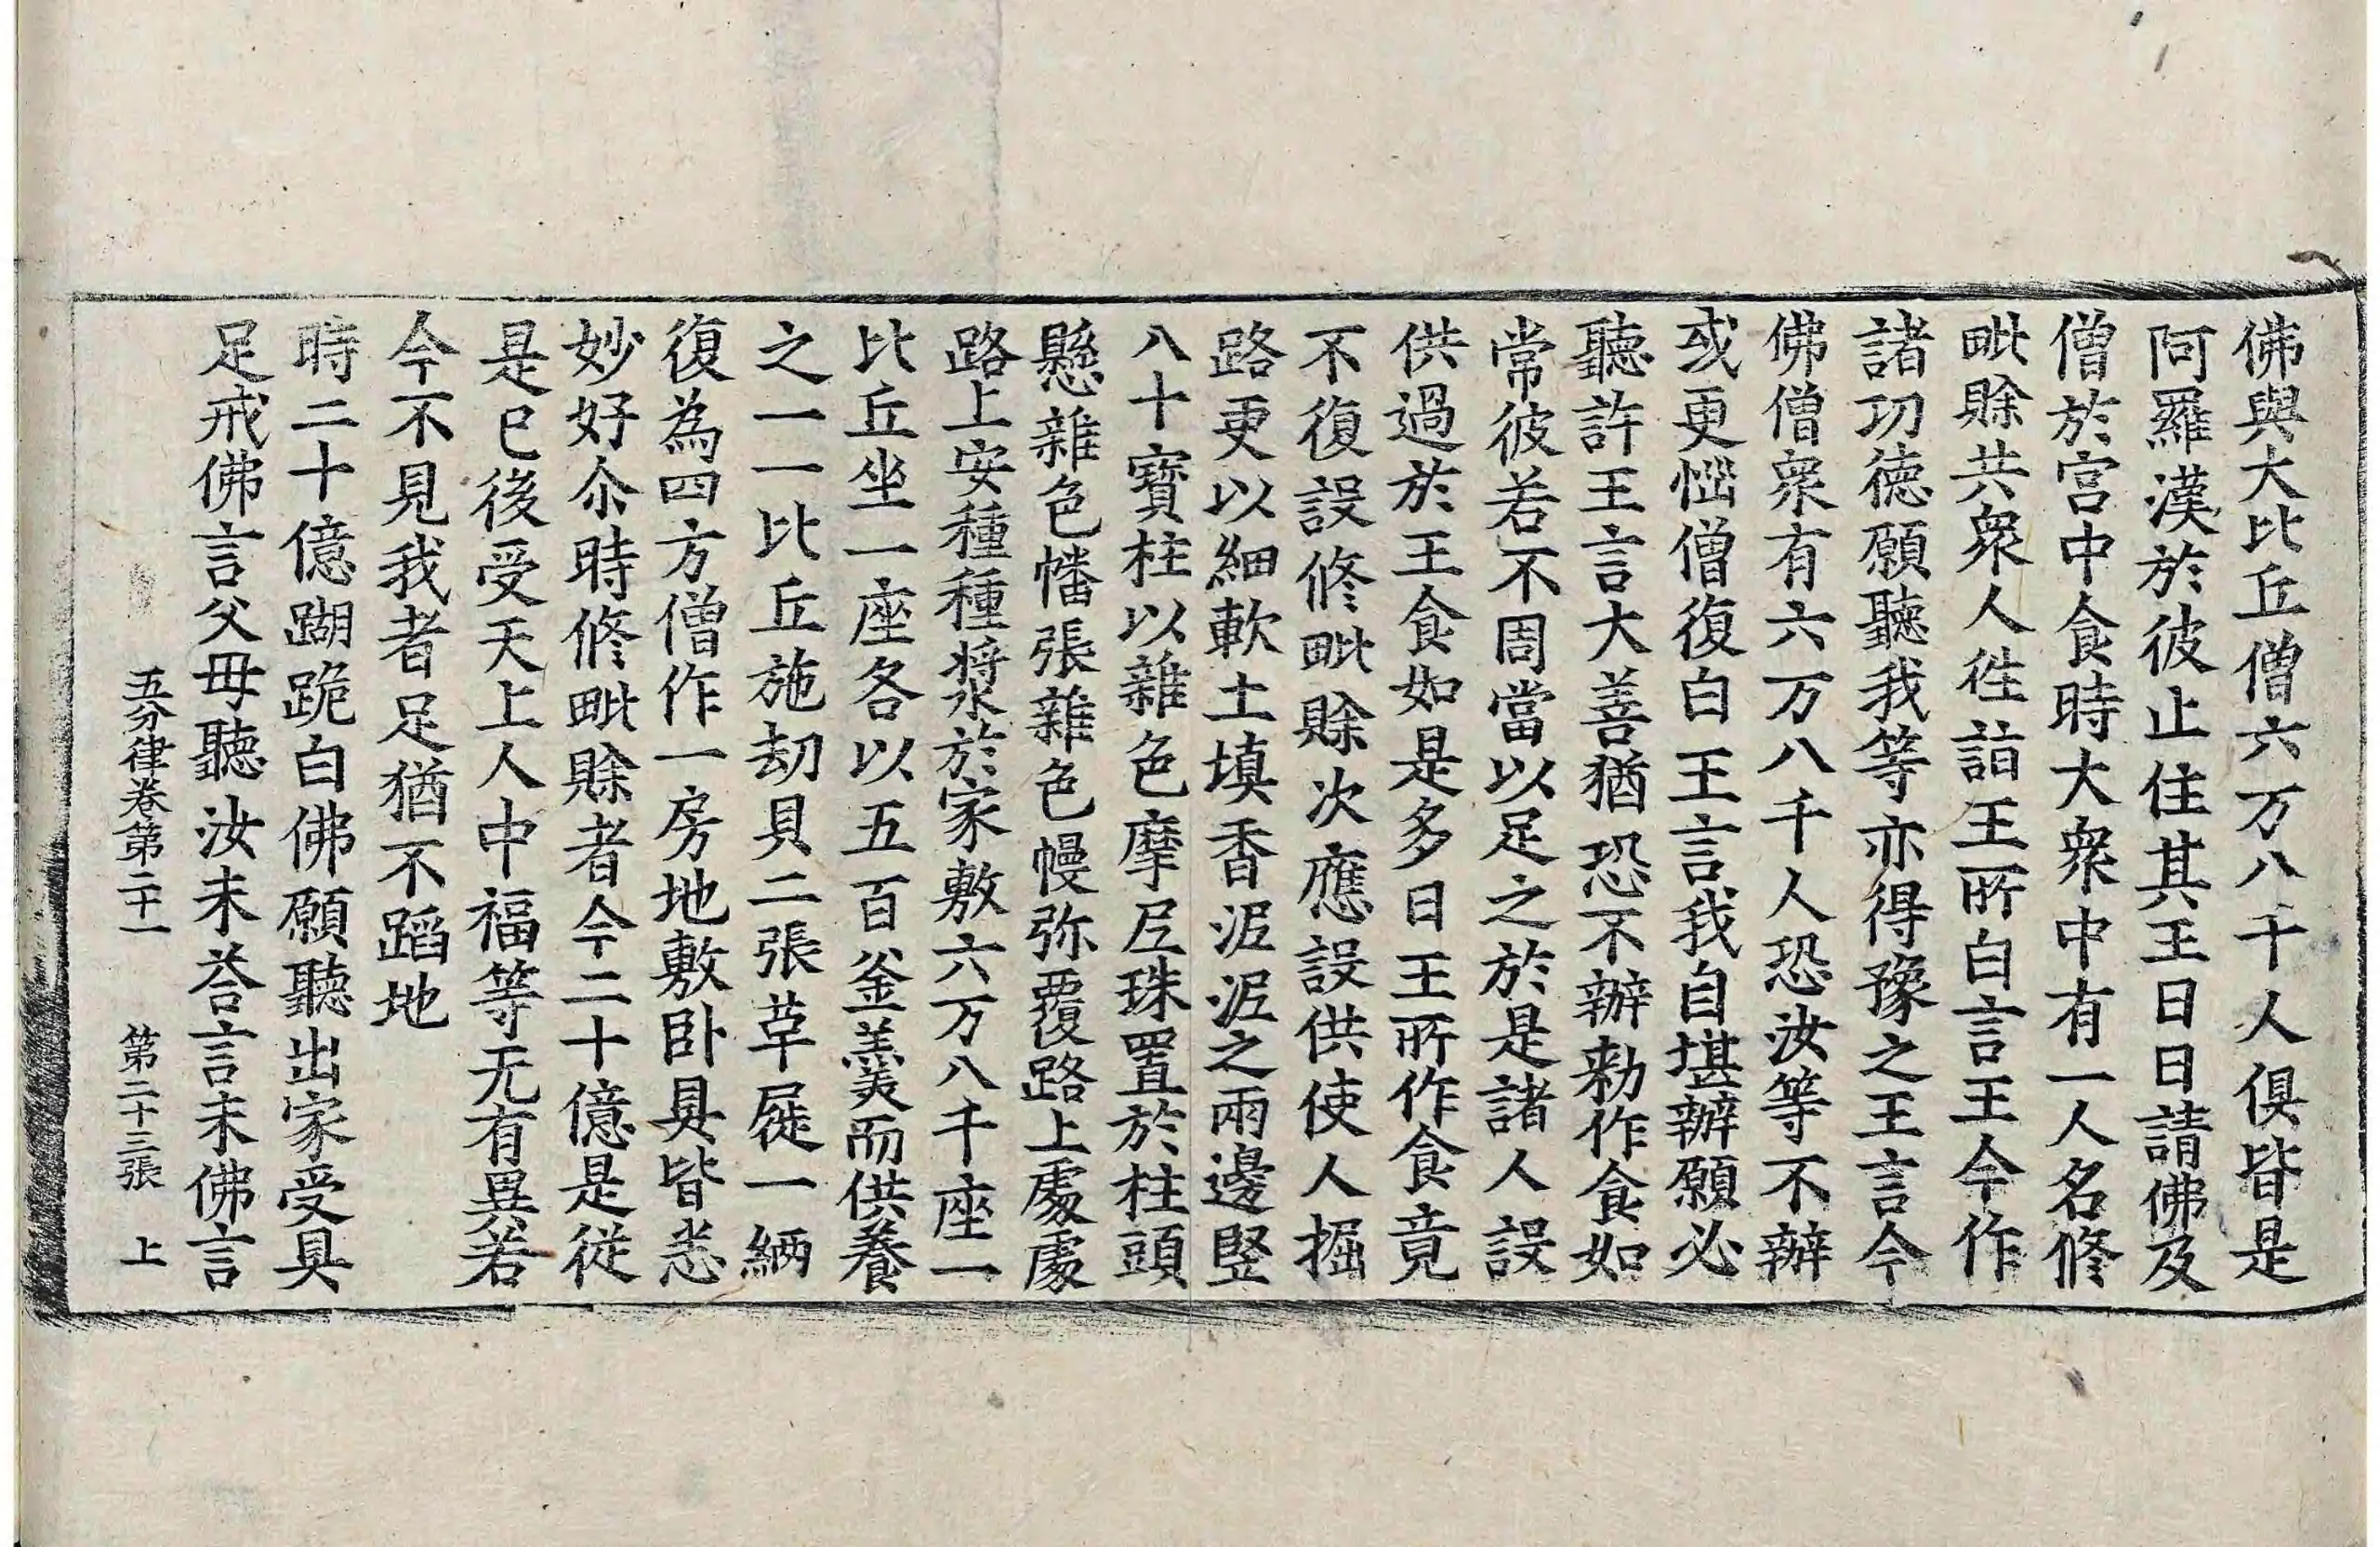 佛與大比丘僧六万八千人俱皆是
阿羅漢於彼止住其王日日請佛及
僧於宮中食時大衆中有一人名修
毗賒共衆人往詣王所白言王今作
諸功德願聽我等亦得豫之王言今
佛僧衆有六万八千人恐汝等不辦
或更惱僧復白王言我自堪辦願必
聽許王言大善猶恐不辦勑作食如
常彼若不周當以足之於是諸人設
供過於王食如是多日王所作食竟
不復設修毗賒次應設供使人掘
路更以細軟土填香泥泥之兩邊竪
八十寶柱以雜色摩尼珠置於柱頭
懸雜色幡張雜色幔弥覆路上處處
路上安種種漿於家敷六万八千座一
比丘坐一座各以五百釜羹而供養
之一一比丘施劫貝二張革屣一緉
復為四方僧作一房地敷卧具皆悉
妙好尒時修毗賒者今二十億是從
是已後受天上人中福等无有異若
今不見我者足猶不蹈地
時二十億𨄔跪白佛願聽出家受具
足戒佛言父母聽汝未荅言未佛言
五分律卷第二十一 第二十三張 上